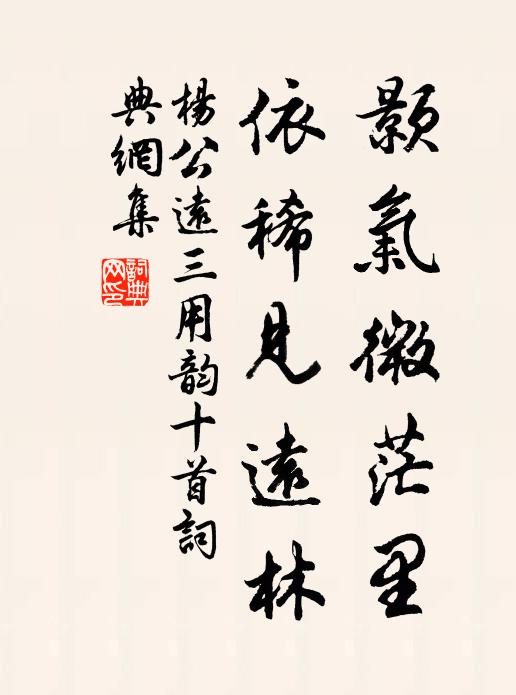 顥氣微茫里
依稀見遠林
楊公遠三用韵十首詞
典網集
詞典網印